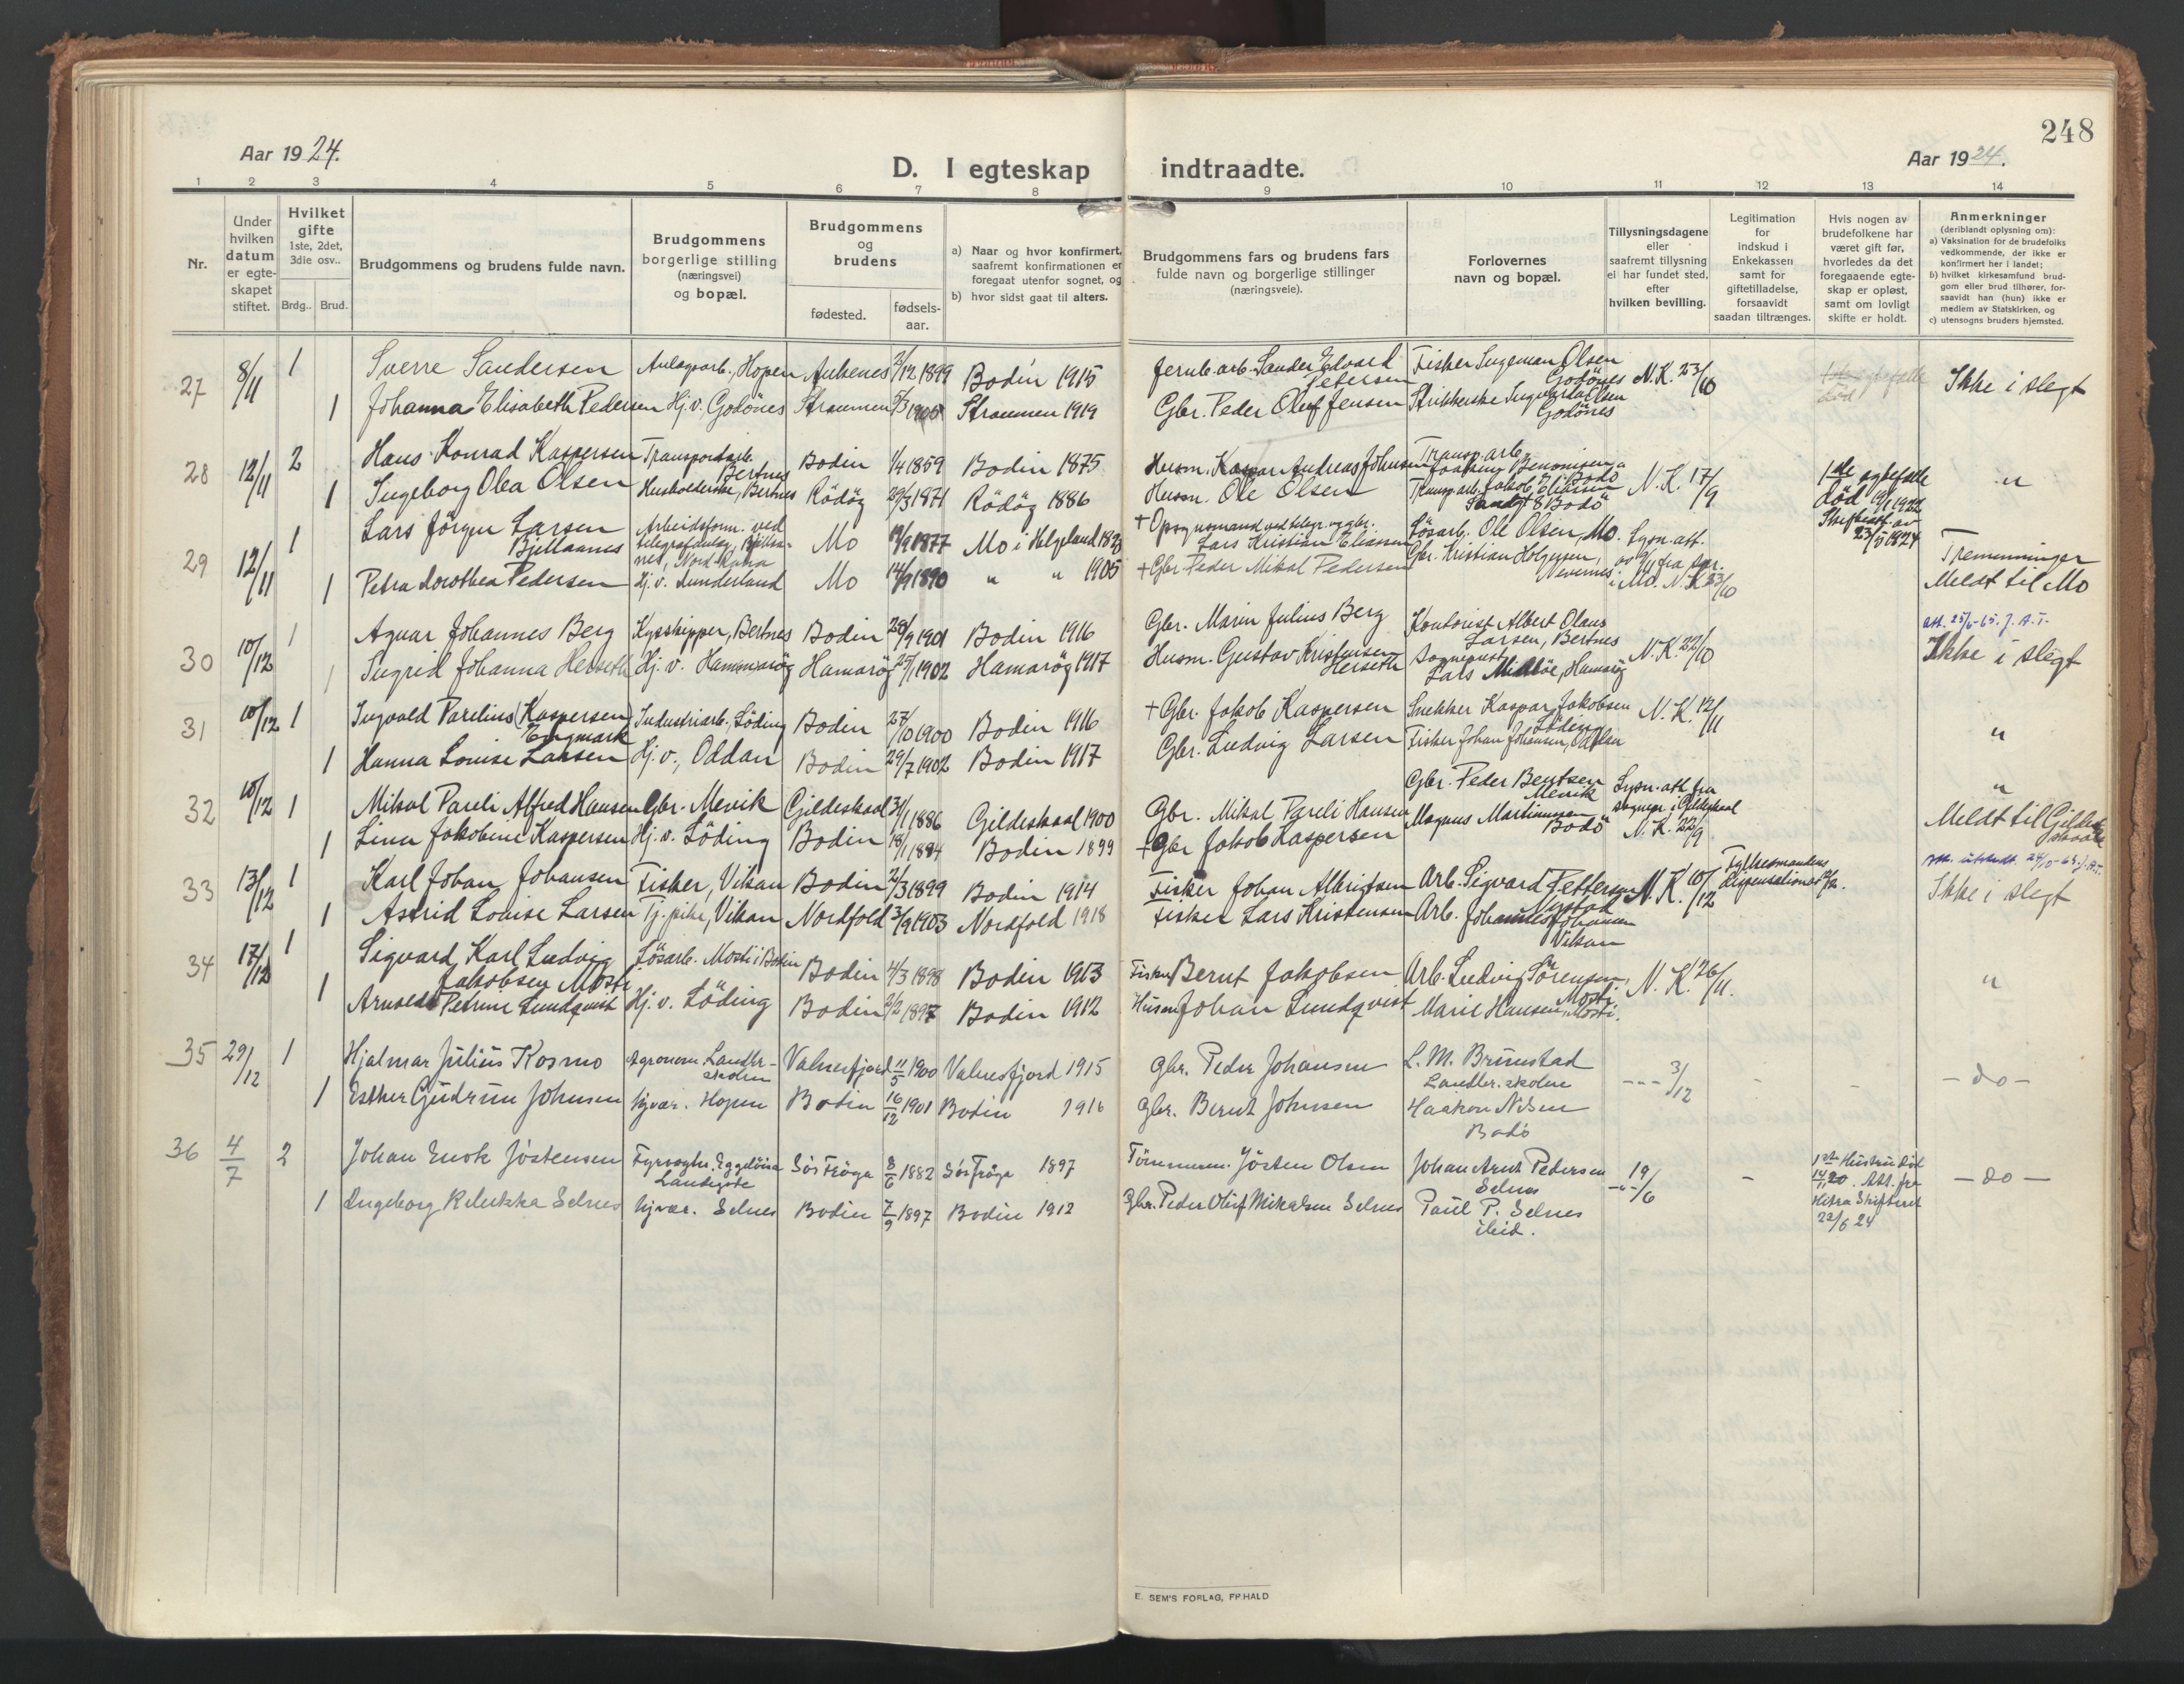 248
Aar 1924.
D. I egteskap indtraadte.
Aar 1924.
1 2 3 4 5 6 7 8 9 10 11 12 13 14
Nr.
Under hvilken datum er egte-skapet stiftet.
Hvilket gifte 1ste, 2det, 3die osv..
Brdg.. Brud.
Brudgommens og brudens fulde navn.
Brudgommens borgerlige stilling (næringsvei) og bopæl.
Brudgommens og brudens
fødested. fødsels-aar.
a) Naar og hvor konfirmert, saafremt konfirmationen er foregaat utenfor sognet, og
b) hvor sidst gaat til alters.
Brudgommens fars og brudens fars fulde navn og borgerlige stillinger (næringsveie).
Forlovernes navn og bopæl.
Tillysningsdagene eller saafremt tillysning ei har fundet sted, efter hvilken bevilling.
Legitimation for indskud i Enkekassen samt for giftetilladelse, forsaavidt saadan tiltrænges.
Hvis nogen av brudefolkene har været gift før, hvorledes da det foregaaende egte-skap er opløst, samt om lovligt skifte er holdt.
Anmerkninger (deriblandt oplysning om):
a) Vaksination for de brudefolks vedkommende, der ikke er konfirmert her i landet;
b) hvilket kirkesamfund brud-gom eller brud tilhører, for-saavidt han (hun) ikke er medlem av Statskirken, og
c) utensogns bruders hjemsted.
27 8/11 1 Sverre Sandersen Anlægsarb., Hopen Ankenes 2/12 1899 Bodin 1915 Jernb. arb. Sander Edvard Petersen Fisker Ingeman Olsen Godönes N.K. 23/10 Ikke i slegt
1 Johanna Elisabeth Pedersen Hj.v. Godönes Straumen 1905 Straumen 1919 Gbr. Peder Oluf Jensen Strikkerske Olsen Godönes
28 12/11 2 Hans Konrad Kaspersen Transportarb. Bertnes Bodin 1/4 1859 Bodin 1875 Husm. Kaspar Andreas Johnsen Transp. arb. Joakim Benonisen Bodö N.K. 17/9 1ste egtefælle död 19/1 1922 Skifteatt. av 23/5 1924 "
1 Ingeborg Olea Olsen Husholderske, Bertnes Rödöy 29/3 1871 Rödöy 1886 Husm. Ole Olsen Transp. arb. Jakob Eliassen Bodö
29 12/11 1 Lars Jörgen Larsen Bjellaanes Arbeidsform. ved telegrafanlæg, Nord-Rana Mo 1877 Mo i Helgeland + Opsynsmand ved telegr. og gbr. Lars Kristian Eliassen Lösarb. Ole Olsen, Mo. Lysn. att. Tremenninger
1 Petra Dorothea Pedersen Hj.v. Dunderland Mo 14/9 1890 " " 1905 + Gbr. Peder Mikal Pedersen Gbr. Kristian Holgersen, Nevernes i Mo. N.K. 23/10 Meldt til Mo
30 10/12 1 Agvar Johannes Berg Kysskipper, Bertnes Bodin 28/9 1901 Bodin 1916 Gbr. Marin Julius Berg Kontorist Albert Olaus Larsen, Bertnes N.K. 22/10 att. 25/6-65. J.A.T. Ikke i slegt
1 Sigrid Johanna Herseth Hj.v. Hammaröy Hamaröy 25/1 1902 Hamaröy 1917 Husm. Gustav Kristensen Herseth Sogneprest Lars Hamaröy
31 10/12 1 Ingvald Parelius (Kaspersen) Engmark Industriarb. Löding Bodin 27/10 1900 Bodin 1916 + Gbr. Jakob Kaspersen Snekker Kaspar Jakobsen Löding N.K. 12/11 "
1 Hanna Louise Larsen Hj.v., Oddan Bodin 29/7 1902 Bodin 1917 Gbr. Ludvig Larsen Fisker Johan Johansen, Oddan
32 10/12 1 Mikal Pareli Alfred Hansen Gbr. Mevik Gildeskaal 31/1 1886 Gildeskaal 1900 Gbr. Mikal Pareli Hansen Gbr. Peder Bentsen Mevik Lysn. att. fra sognepr. i Gildeskaal N.K. 22/9 " Meldt til Gildeskaal
1 Lina Jakobine Kaspersen Hj.v. Löding Bodin 18/1 1884 Bodin 1899 + Gbr Jakob Kaspersen Magnus Martinussen Bodö
33 13/12 1 Karl Johan Johansen Fisker, Vikan Bodin 2/3 1899 Bodin 1914 Fisker Johan Albrigtsen Arb. Sigvard Pettersen N.K. 10/12 Fylkesmandens dispensation Ikke i slegt
1 Astrid Louise Larsen Tj. pike, Vikan Nordfold 3/9 1903 Nordfold 1918 Fisker Lars Kristensen Arb. Johannes Johansen Vikan
34 17/12 1 Sigvard Karl Ludvig Jakobsen Mosti Lösarb. Mosti i Bodin Bodin 4/3 1898 Bodin 1913 Fisker Bernt Jakobsen Arb. Ludvig Sörensen, Mosti N.K. 26/11. "
1 Petrine Lundqvist Hj.v. Löding Bodin 2/2 1897 Bodin 1912 Husm Johan Lundqvist Marie Hansen, Mosti.
35 29/12 1 Hjalmar Julius Kosmo Agronom. Landbr-skolen Valnesfjord 11/5 1900 Valnesfjord 1915 Gbr. Peder Johansen L. M. Brunstad Landbr. skolen -"- 3/12 - - - do -
1 Esther Gudrun Johnsen Hjvær. Hopen Bodin 16/12 1901 Bodin 1916 Gbr. Bernt Johnsen Haakon Nilsen Bodö
36 4/7 2 Johan Enok Jöstensen Fyrvogter. Eggelöisa Landegode Sör Fröya 8/6 1882 Sör Fröya 1897 Tömmerm. Jösten Olsen Johan Arnt Pedersen Selnes -"- 19/6 - 1ste Hustru död 14/11 20. Att. fra Hitra Skifteret 22/6 24 - do -
1 Ingeborg Rebekka Selnes Hjvær. Selnes Bodin 7/9 1897 Bodin 1912 Gbr. Peder Oluf Mikalsen Selnes Paul P. Selnes ibid.
E. SEM'S FORLAG, FR.HALD